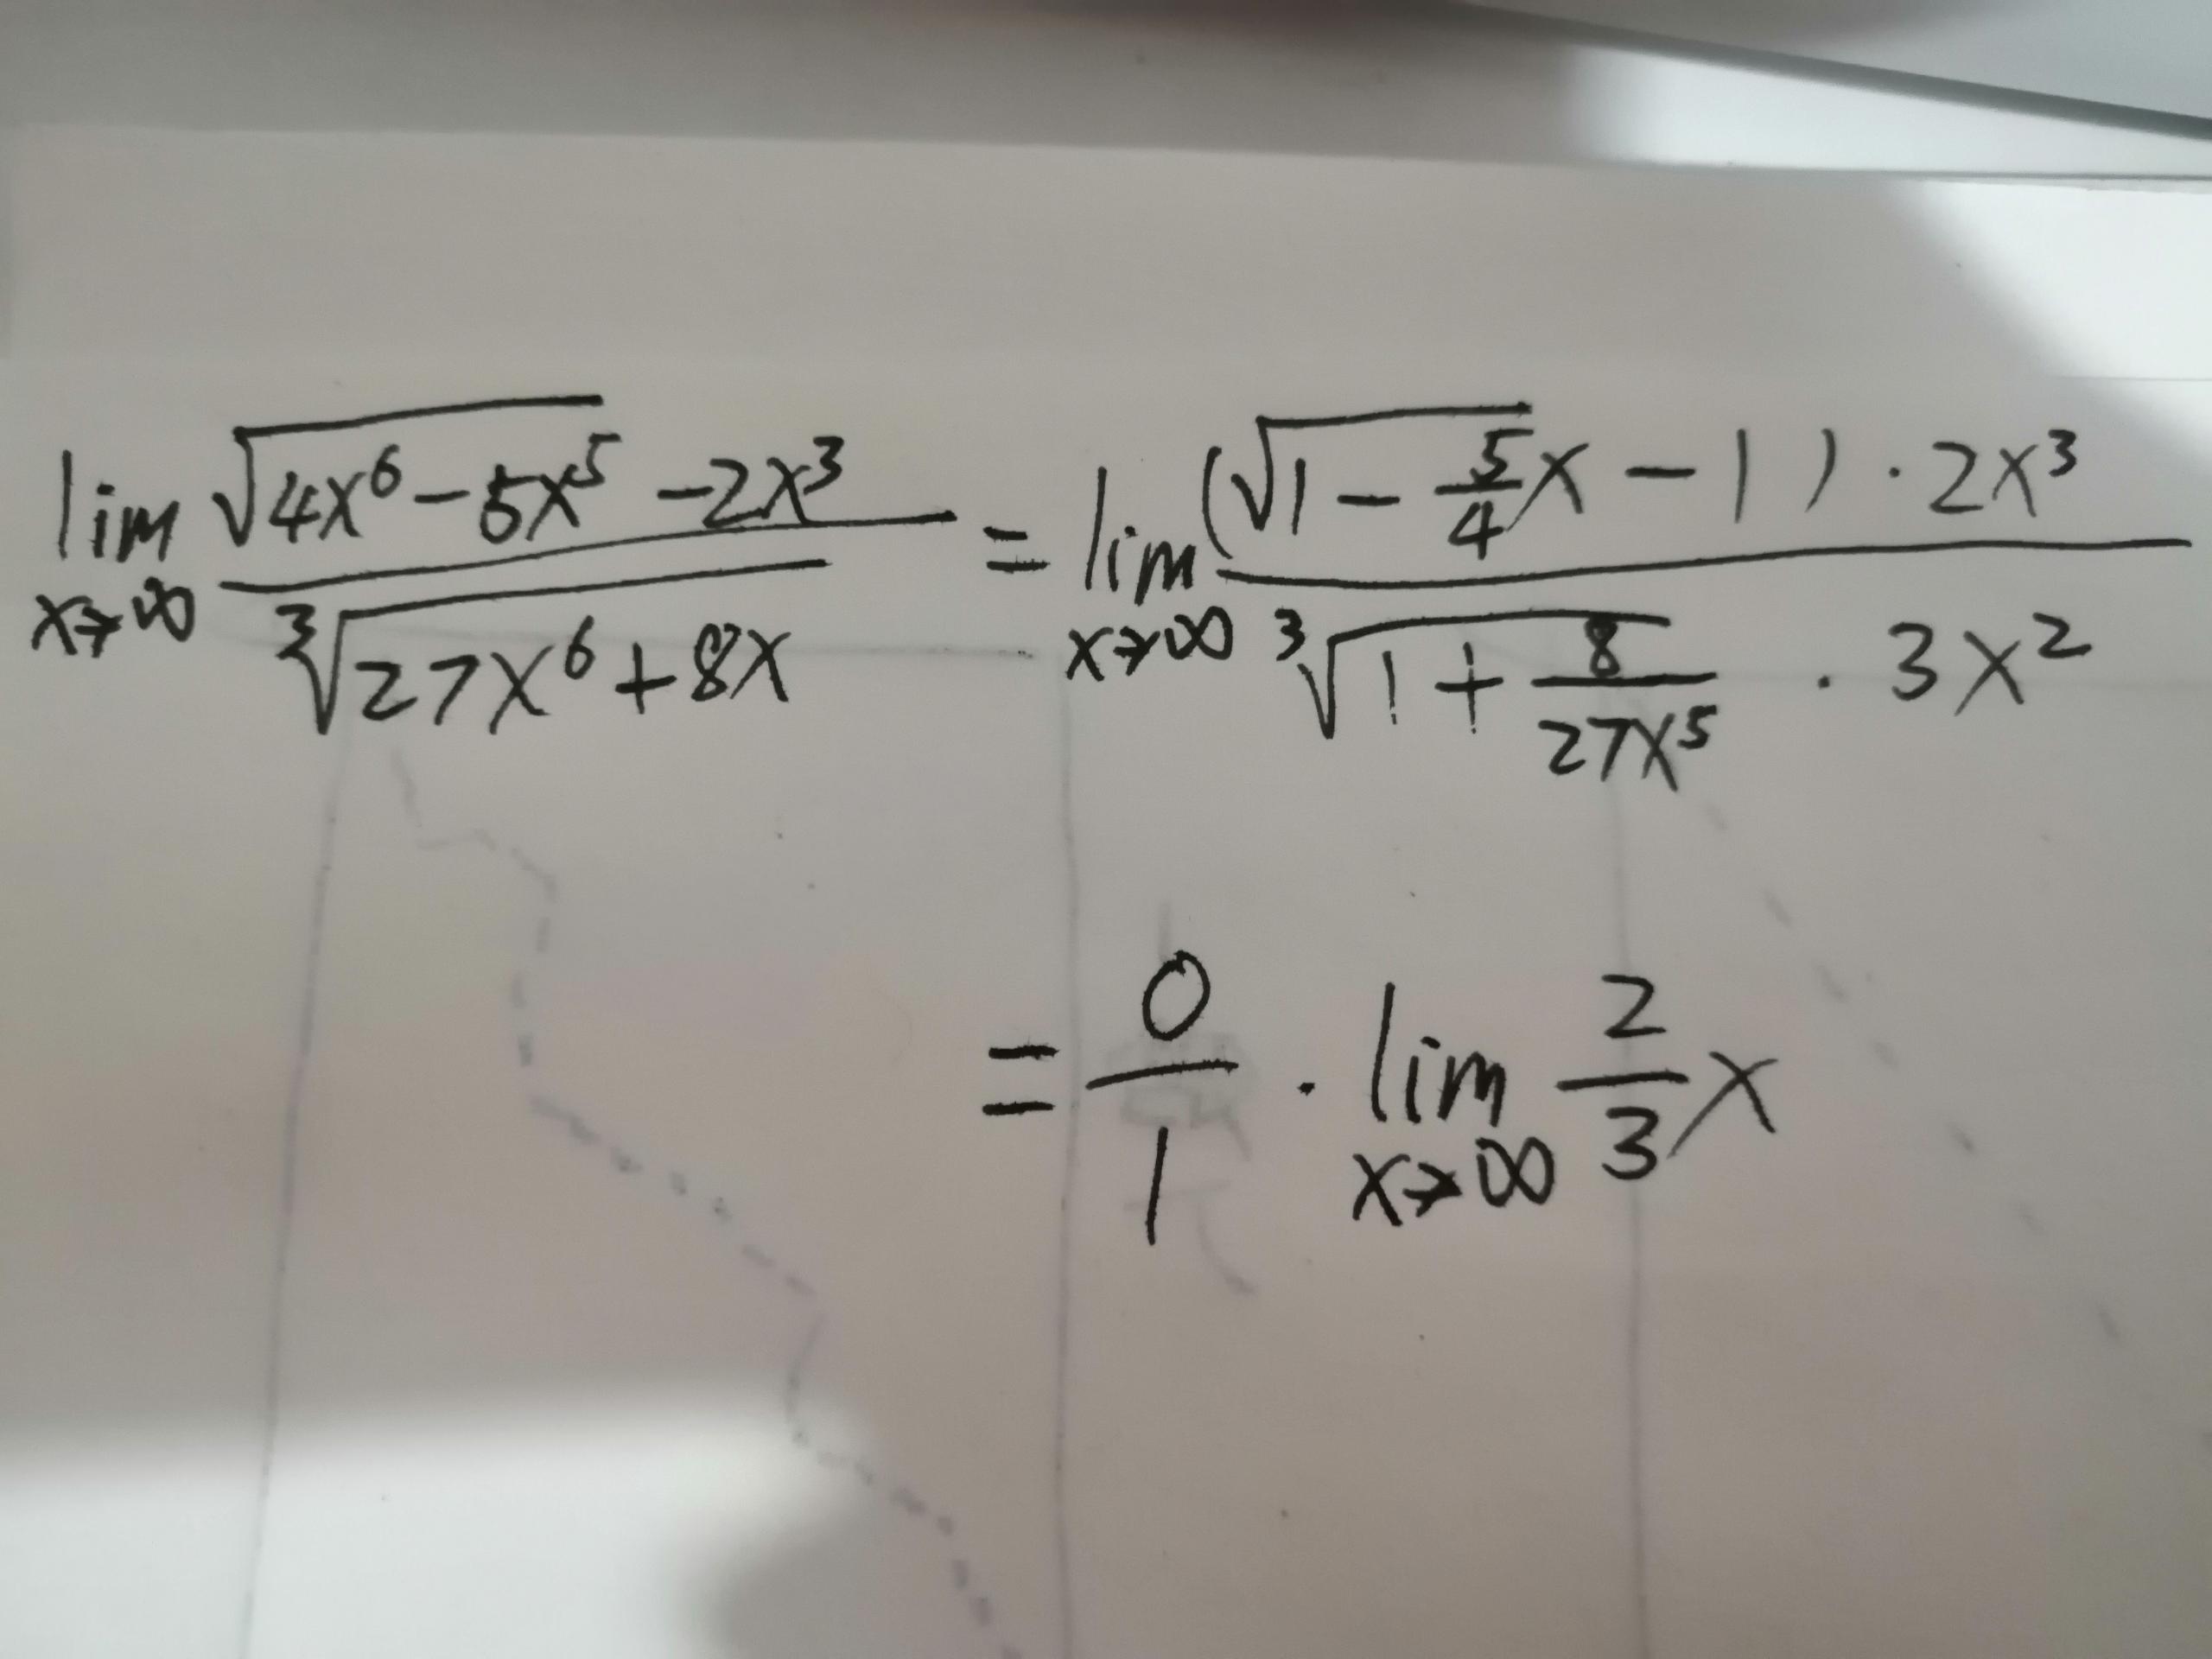 lim x→∞ (√(4x⁶ - 5x⁵) - 2x³) / ∛(27x⁶ + 8x) = lim x→∞ ((√(1 - 5/4 x) - 1) · 2x³) / (∛(1 + 8/(27x⁵)) · 3x²)
= 0/1 · lim x→∞ 2/3 x